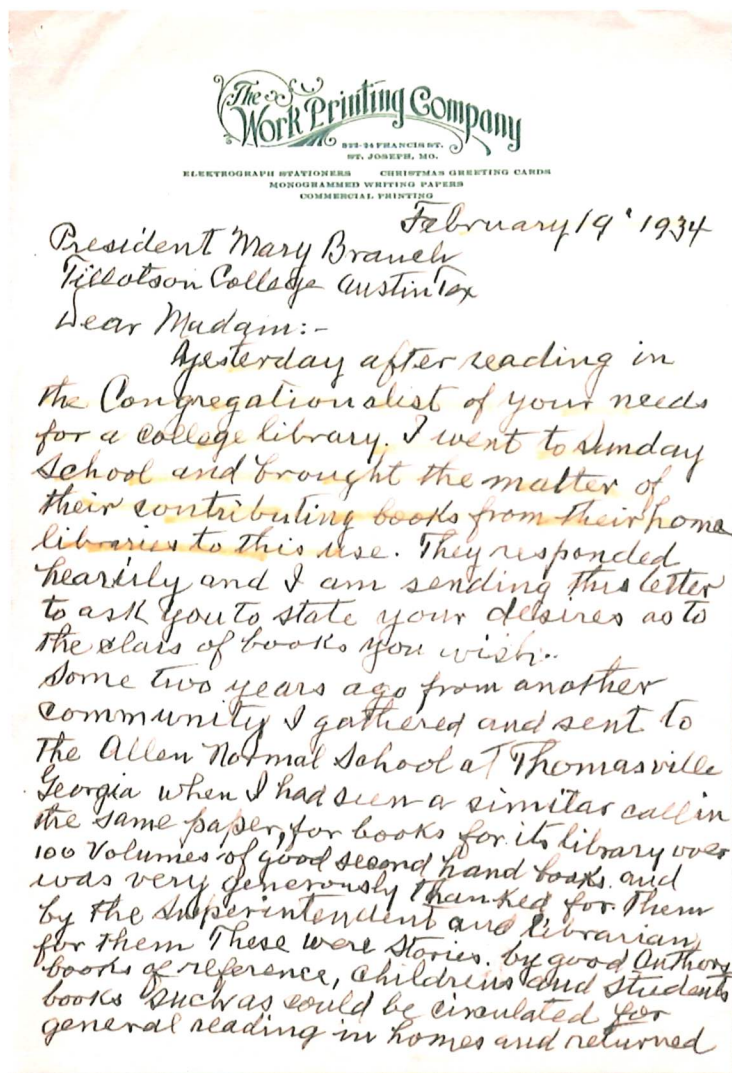 The
Work Printing Company
822-24 FRANCIS ST.
ST. JOSEPH, MO.
ELEKTROGRAPH STATIONERS CHRISTMAS GREETING CARDS
MONOGRAMMED WRITING PAPERS
COMMERCIAL PRINTING
February 19' 1934
President Mary Branch
Tillotson College Austin Tex
Dear Madam:-
Yesterday after reading in
the Congregationalist of your needs
for a college library. I went to Sunday
School and brought the matter of
their contributing books from their home
libraries to this use. They responded
heartily and I am sending this letter
to ask you to state your desires as to
the class of books you wish.
Some two years ago from another
community I gathered and sent to
the Allen Normal School at Thomasville
Georgia when I had seen a similar call in
the same paper, for books for its library over
100 Volumes of good second hand books. and
was very generously thanked for them
by the Superintendent and librarian
for them These were Stories. by good Authors
books of reference, childrens and Students
books such as could be circulated for
general reading in homes and returned